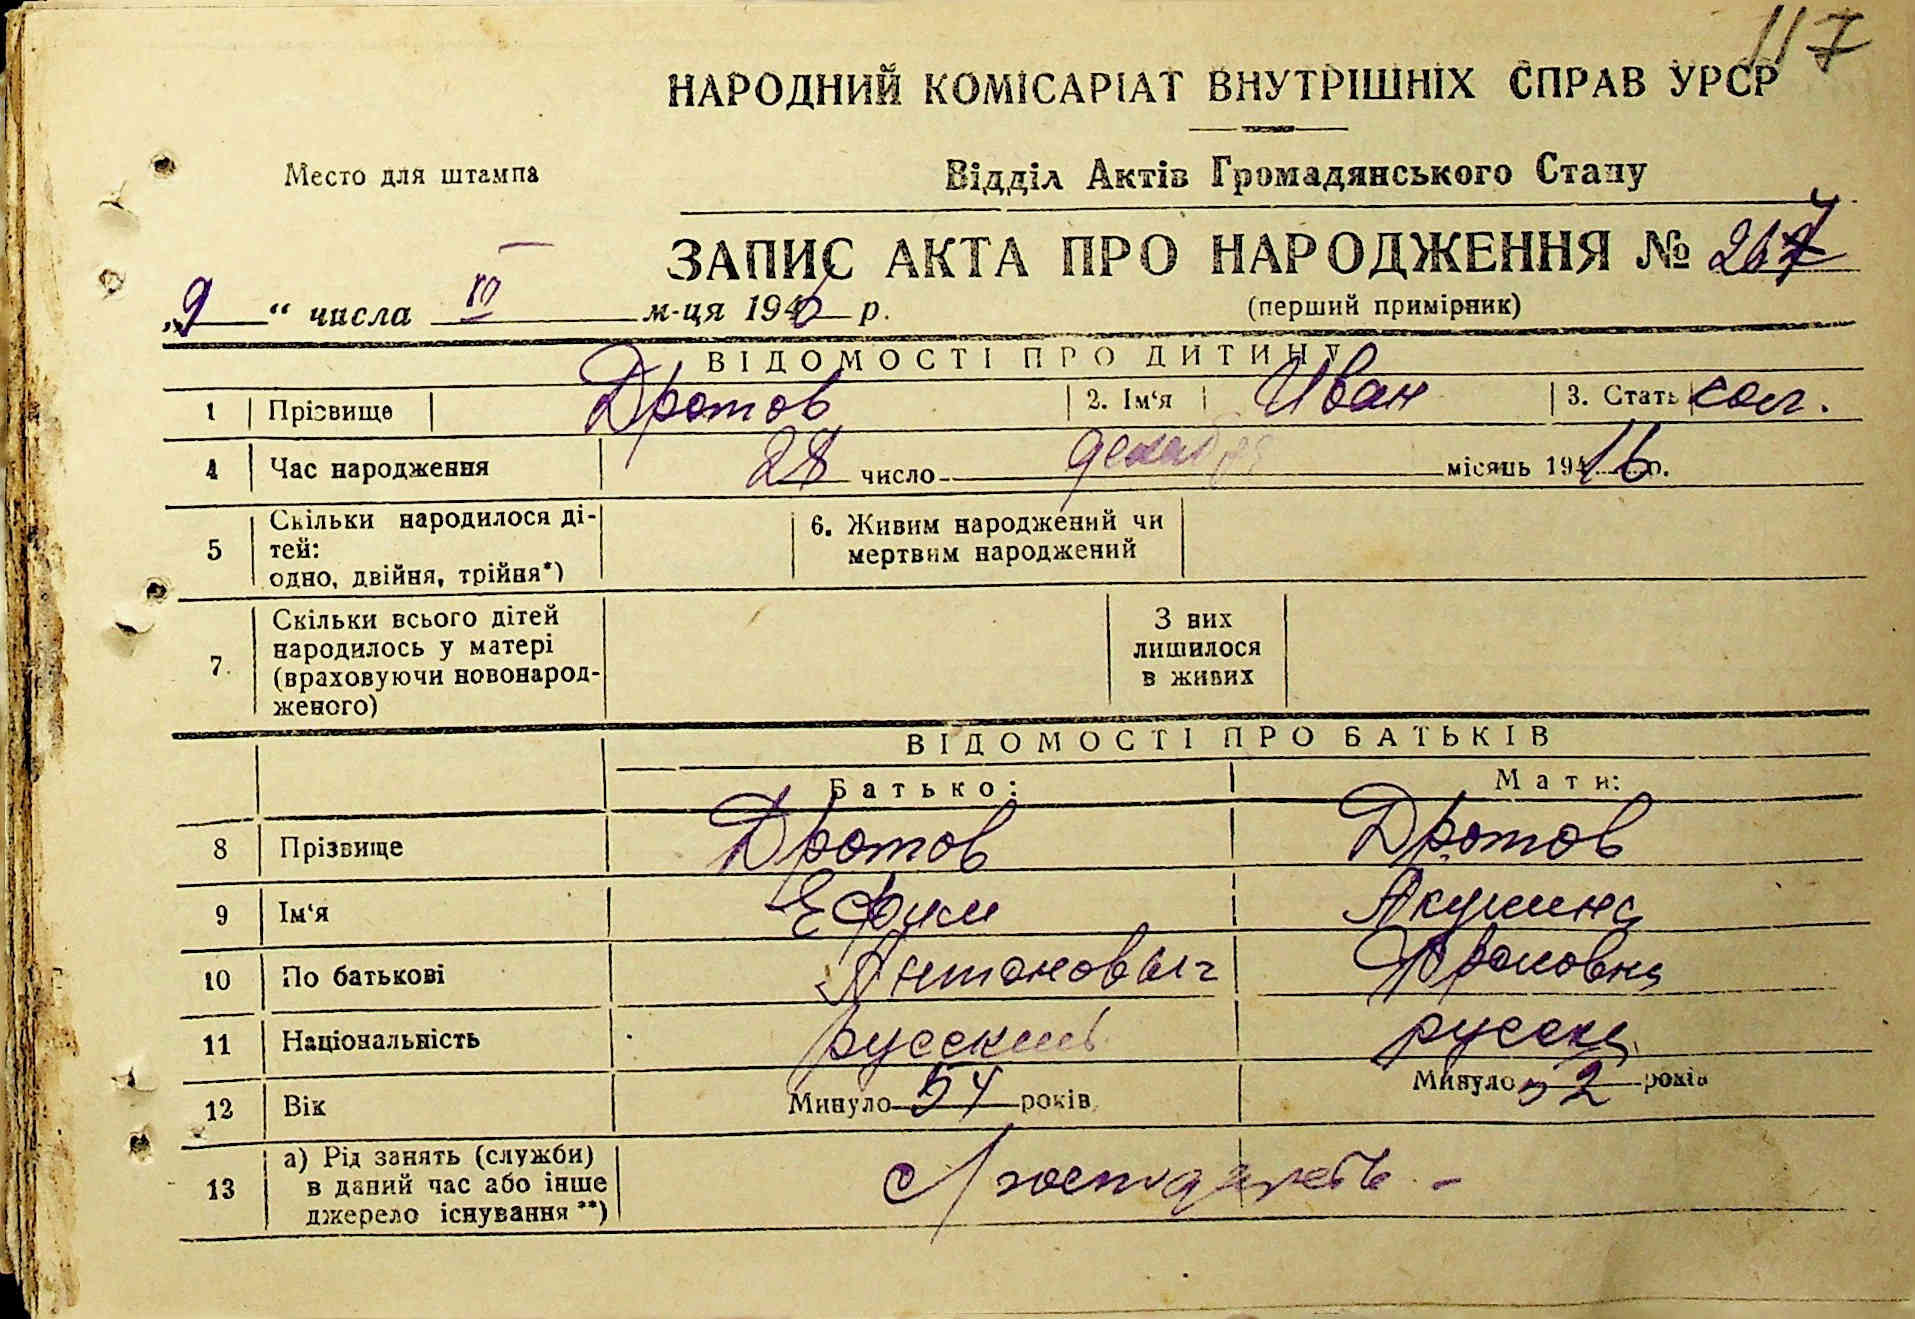 117
НАРОДНИЙ КОМІСАРІАТ ВНУТРІШНІХ СПРАВ УРСР
Место для штампа
Відділ Актів Громадянського Стану
ЗАПИС АКТА ПРО НАРОДЖЕННЯ № 267
„9“ числа м-ця 194 р.
(перший примірник)
ВІДОМОСТІ ПРО ДИТИНУ
1 Прізвище Дротов 2. Ім‘я Иван 3. Стать
4 Час народження 28 число декабря місяць 1916 р.
5 Скільки народилося ді-
тей:
одно, двійня, трійня*)
6. Живим народжений чи
мертвим народжений
7. Скільки всього дітей
народилось у матері
(враховуючи новонарод-
женого)
З них
лишилося
в живих
ВІДОМОСТІ ПРО БАТЬКІВ
Батько: Мати:
8 Прізвище Дротов Дротов
9 Ім‘я Ефим Акулина
10 По батькові Антонович Фроловна
11 Національність русский русска
12 Вік Минуло 54 років Минуло 52 років
13 а) Рід занять (служби)
в даний час або інше
джерело існування **)